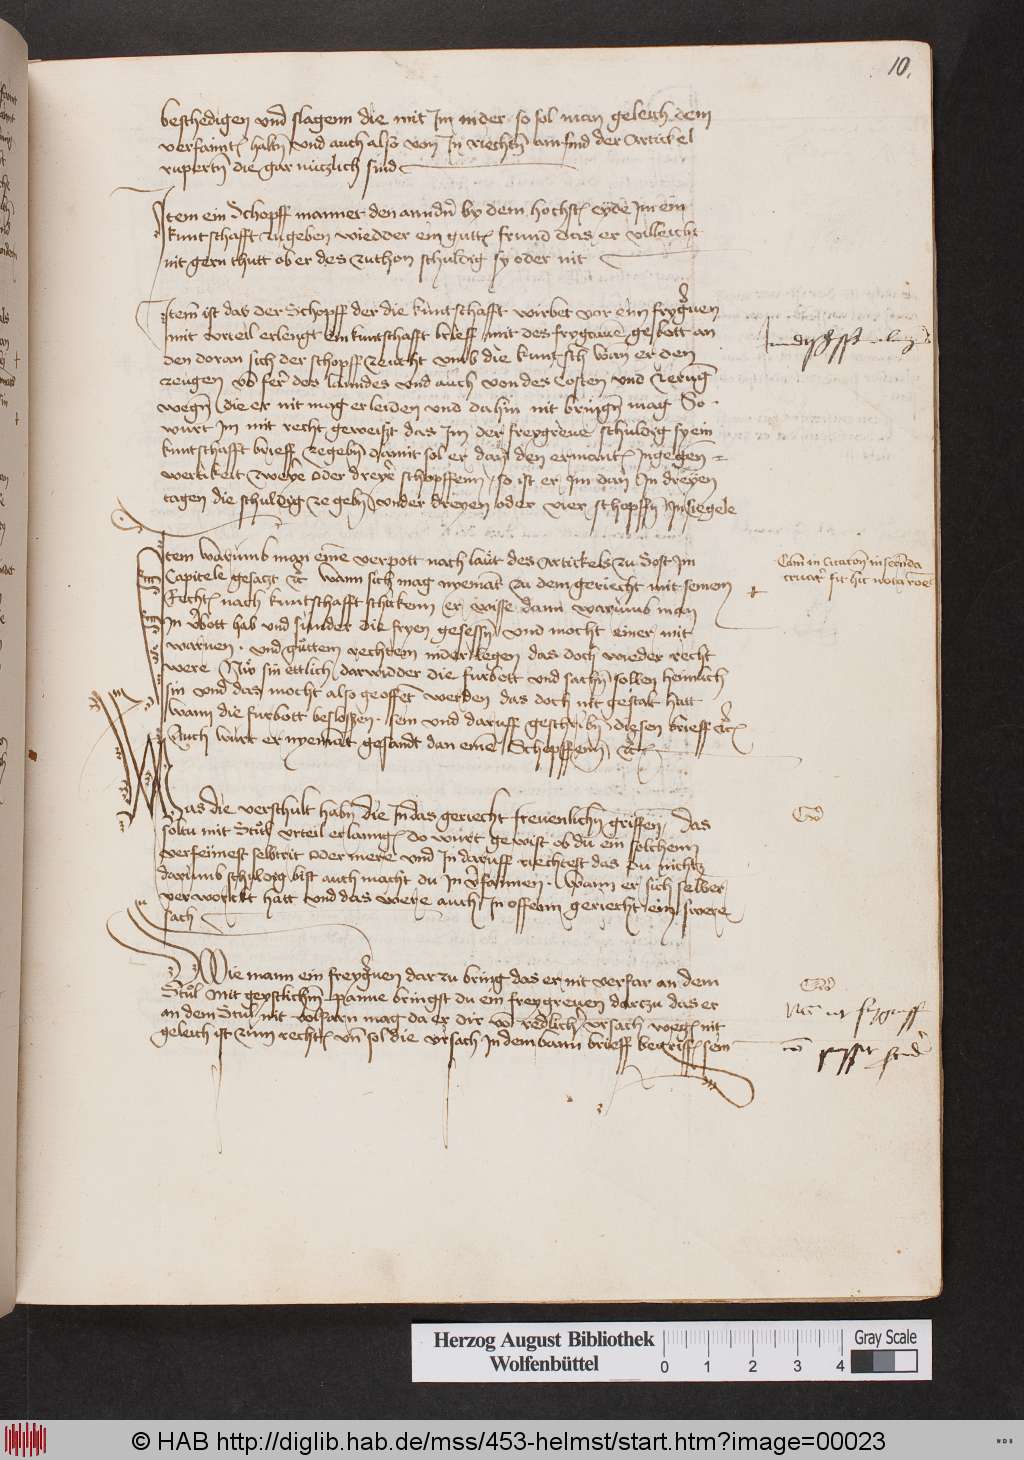 10.
beschedigen vnd slagenn die mit Im in der so sol man geleich dem
verfamt halt̄ vnd auch also von In riecht̄n Am find der Artickel
rupertn̄ die gar nuczlich sind
Item ein Schopff manner den anndn̄ by dem hochst eyde Im ein
kuntschafft zu geben wiedder ein gutt frund das er villeicht
nit gern thutt ob er des zuthon schuldig sy oder nit
Item ist das der Schopff der die kuntschafft wirbet vor eim frygreuen
mit vrteil erlengt ein kuntschafft brieff mit des frygraue gebott an
den doran sich der schopff zeucht vmb die kuntsch wan er den
zeugen vō fer des lanndes vnd auch von des Costen vnd zerung
wegn̄ die er nit mag erleiden vnd dahin nit bringn̄ mag So
wirt Im mit recht geweist das Im der freygreue schuldig sy ein
kuntschafft brieff zegebn̄ damit sol er dan den ermant Ingegen
wertikeit zweye oder dreye schopffenn so ist er Im dan In dreyen
tagen die schuldig ze gebn̄ vnder dreyen oder vier schopffn̄ Insiegele
Item warumb man eine verpott nach laut des Artickels zu Sost Im
Capitele gesatzt etc wann sich mag nyemāt zu dem geriecht mit seinem
Recht nach kuntschafft schickenn er wisse dann warumb man
In v̄bott hab vnd sunder die fryen gesessn̄ vnd mocht einer mit
waruen vnd guttem rechtem niderlegen das doch wieder recht
were Nū sin ettlich darwidder die furbott vnd sachn̄ sollen heimlich
sin vnd das mocht also geoffet werden das doch nit gestat hatt
wann die furbott beslossen sein vnd daruff geschribn̄ diesen brieff etc
Auch wirt er nyemāt gesandt dan eine Schopffenn etc
Was die verschult habn̄ die In das geriecht freuenlichn̄ griffen Das
soltu mit Stuls vrteil erlanng do wirt gewist ob du ein solchenn
verfeimest selbtrit oder mere vnd In daruff riechtest das du nichtz
darumb schuldig bist auch macht du In v̄faimen wann er sich selber
verworckt hatt vnd das were auch In offenn geriecht ein swere
sach
Wie mann ein freygreuen darzu bring das er nit verfar an dem
Stul Mit geystlichm̄ panne bringst du ein freygreuen darczu das er
an dem Stul nit volfarn mag da er dir vō redlicher vrsach weg nit
geleich ist zum recht vn̄ sol die vrsach In dem bann brieff begriff sein
Herzog August Bibliothek
Wolfenbüttel
0 1 2 3 4
Gray Scale
© HAB http://diglib.hab.de/mss/453-helmst/start.htm?image=00023